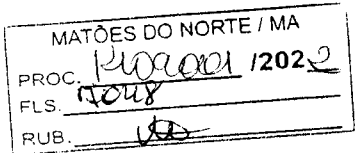 MATÕES DO NORTE / MA
PROC. 1409001 /2022
FLS. 7048
RUB.